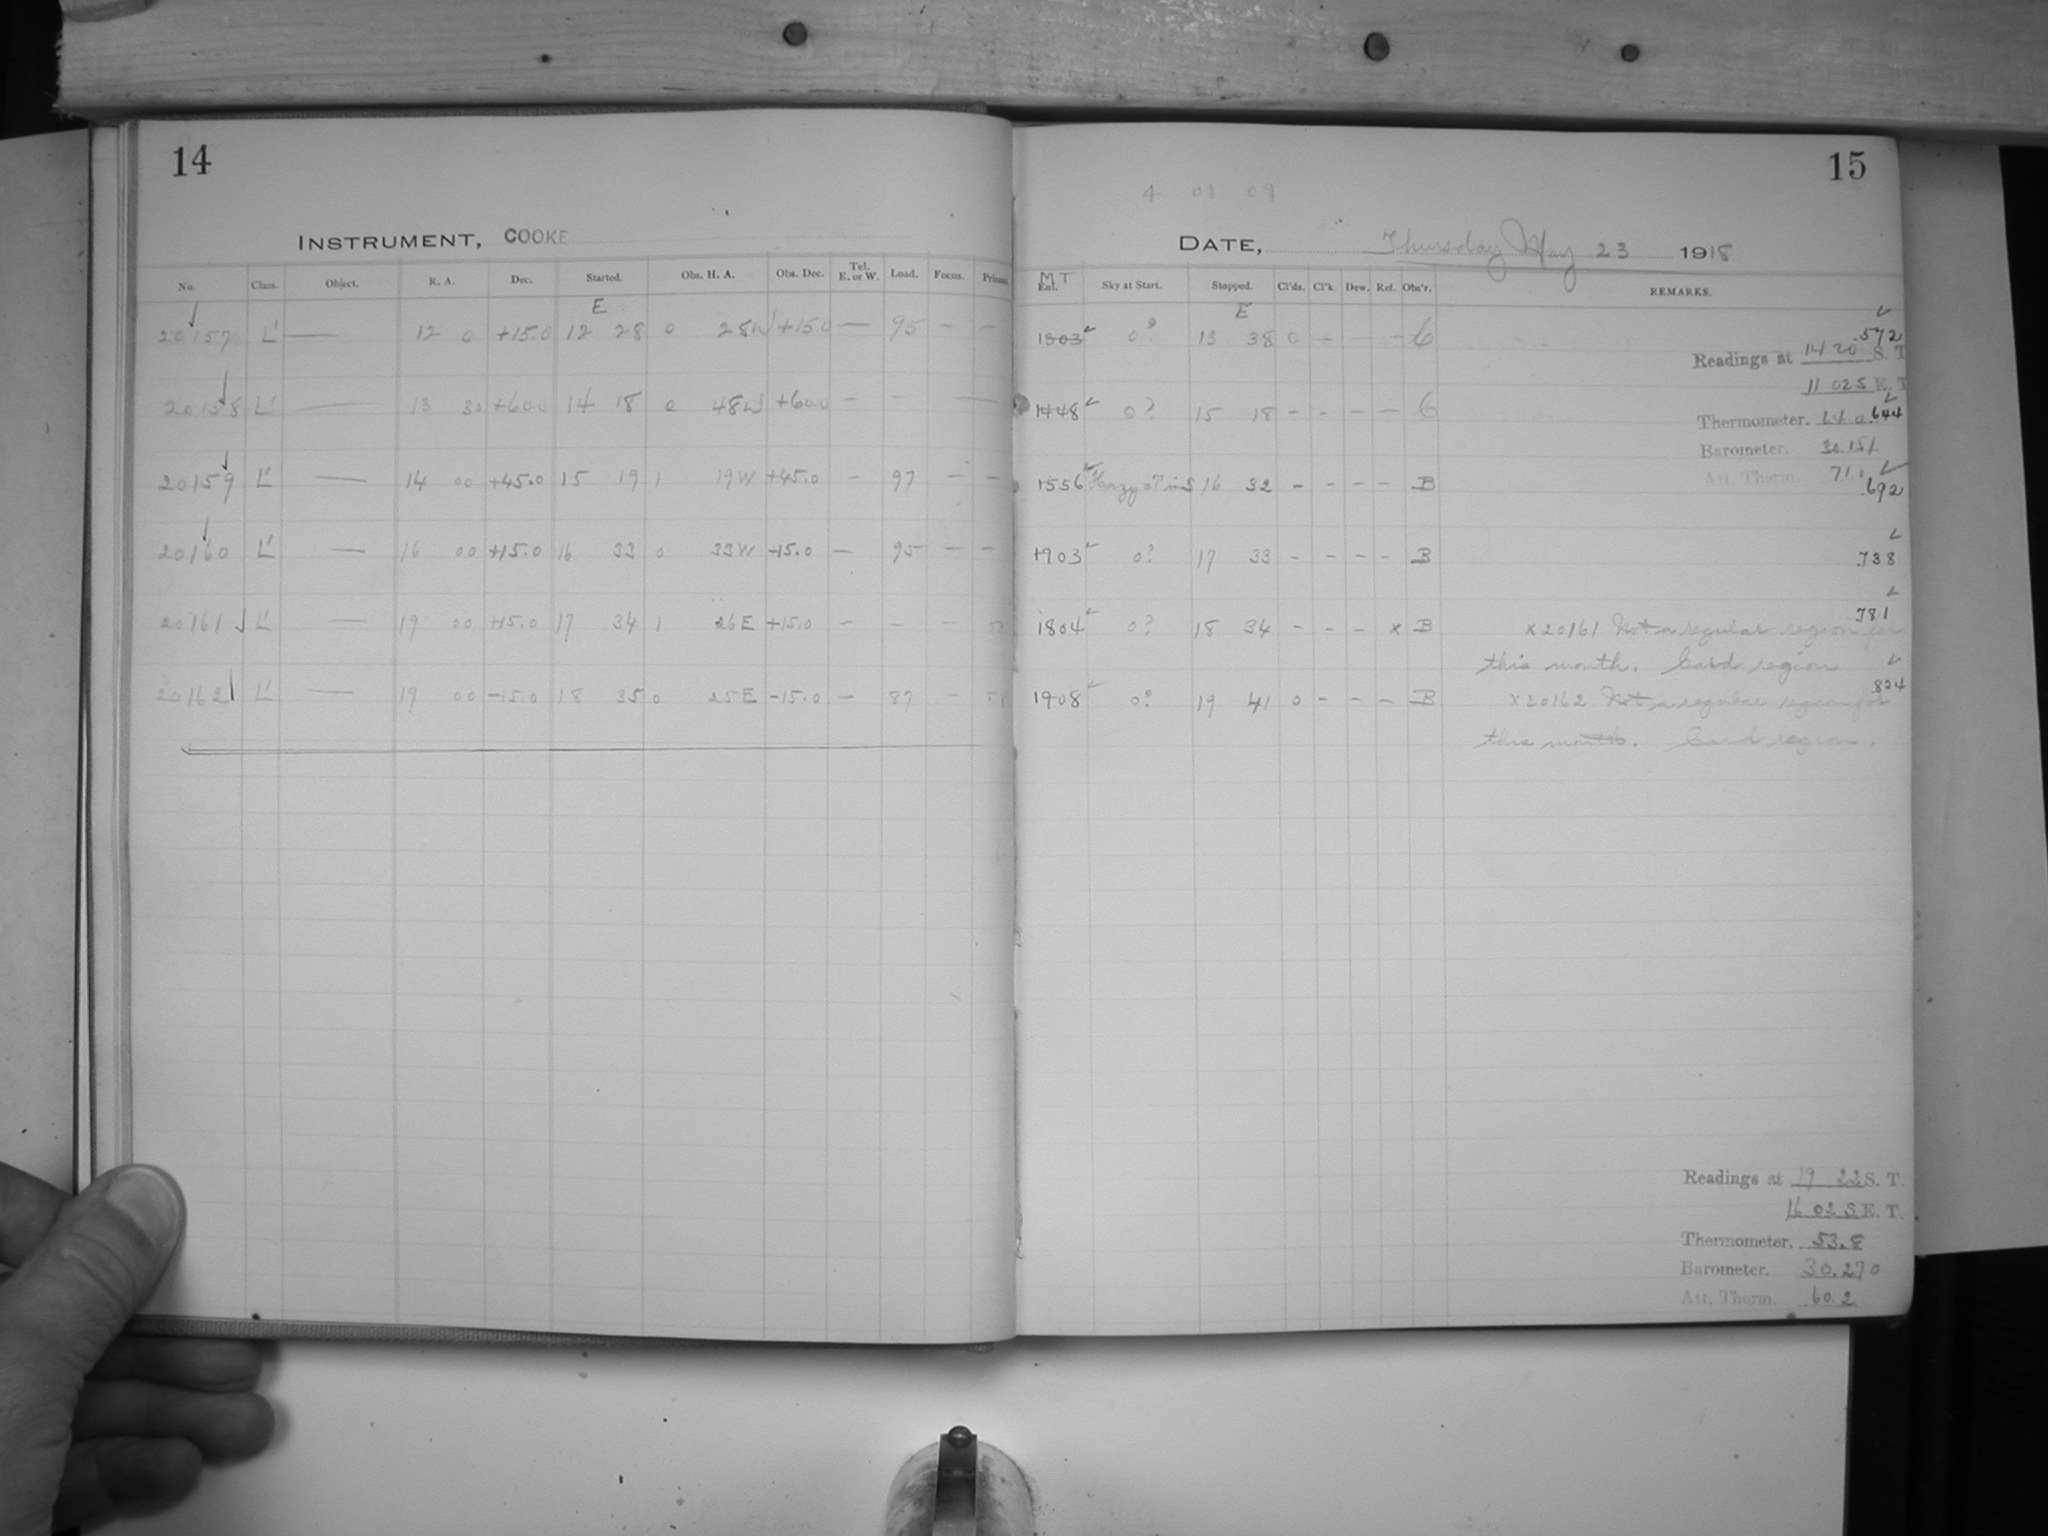 14
INSTRUMENT, COOKE
No. Class. Object. R. A. Dec. Started. Obs. H. A. Obs. Dec. Tel. E. or W. Load. Focus. Prism.
E
20157 L' — 12 0 +15.0 12 28 0 28W +15.0 — 95 - -
20158 L' — 13 30 +60.0 14 18 0 48W +60.0 - - —
20159 L' — 14 00 +45.0 15 19 1 19W +45.0 - 97 - -
20160 L' — 16 00 +15.0 16 33 0 33W +15.0 — 95 - -
20161 L' — 19 00 +15.0 17 34 1 26E +15.0 - - -
20162 L' — 19 00 -15.0 18 35 0 25E -15.0 - 87 -
15
4 01 09
DATE, Thursday May 23 1918
M T
Exl. Sky at Start. Stopped. Cl'ds. Cl'k. Dew. Ref. Obs'r. REMARKS.
E
1303 0? 13 38 0 - - 6 .572
Readings at 14 20 S. T.
11 02 S E. T.
1448 0? 15 18 - - - - 6 .644
Thermometer. 64.0
Barometer. 30.151
Att. Therm. 71.
1556 Hazy 16 32 - - - - B .692
1703 0? 17 33 - - - - B .738
1804 0? 18 34 - - - x B .781
x 20161 Not a regular region for
this month. Card region
1908 0? 19 41 0 - - - B .824
x 20162 Not a regular region for
this month. Card region.
Readings at 19 22 S. T.
16 02 S E. T.
Thermometer. 53.8
Barometer. 30.270
Att. Therm. 60.2